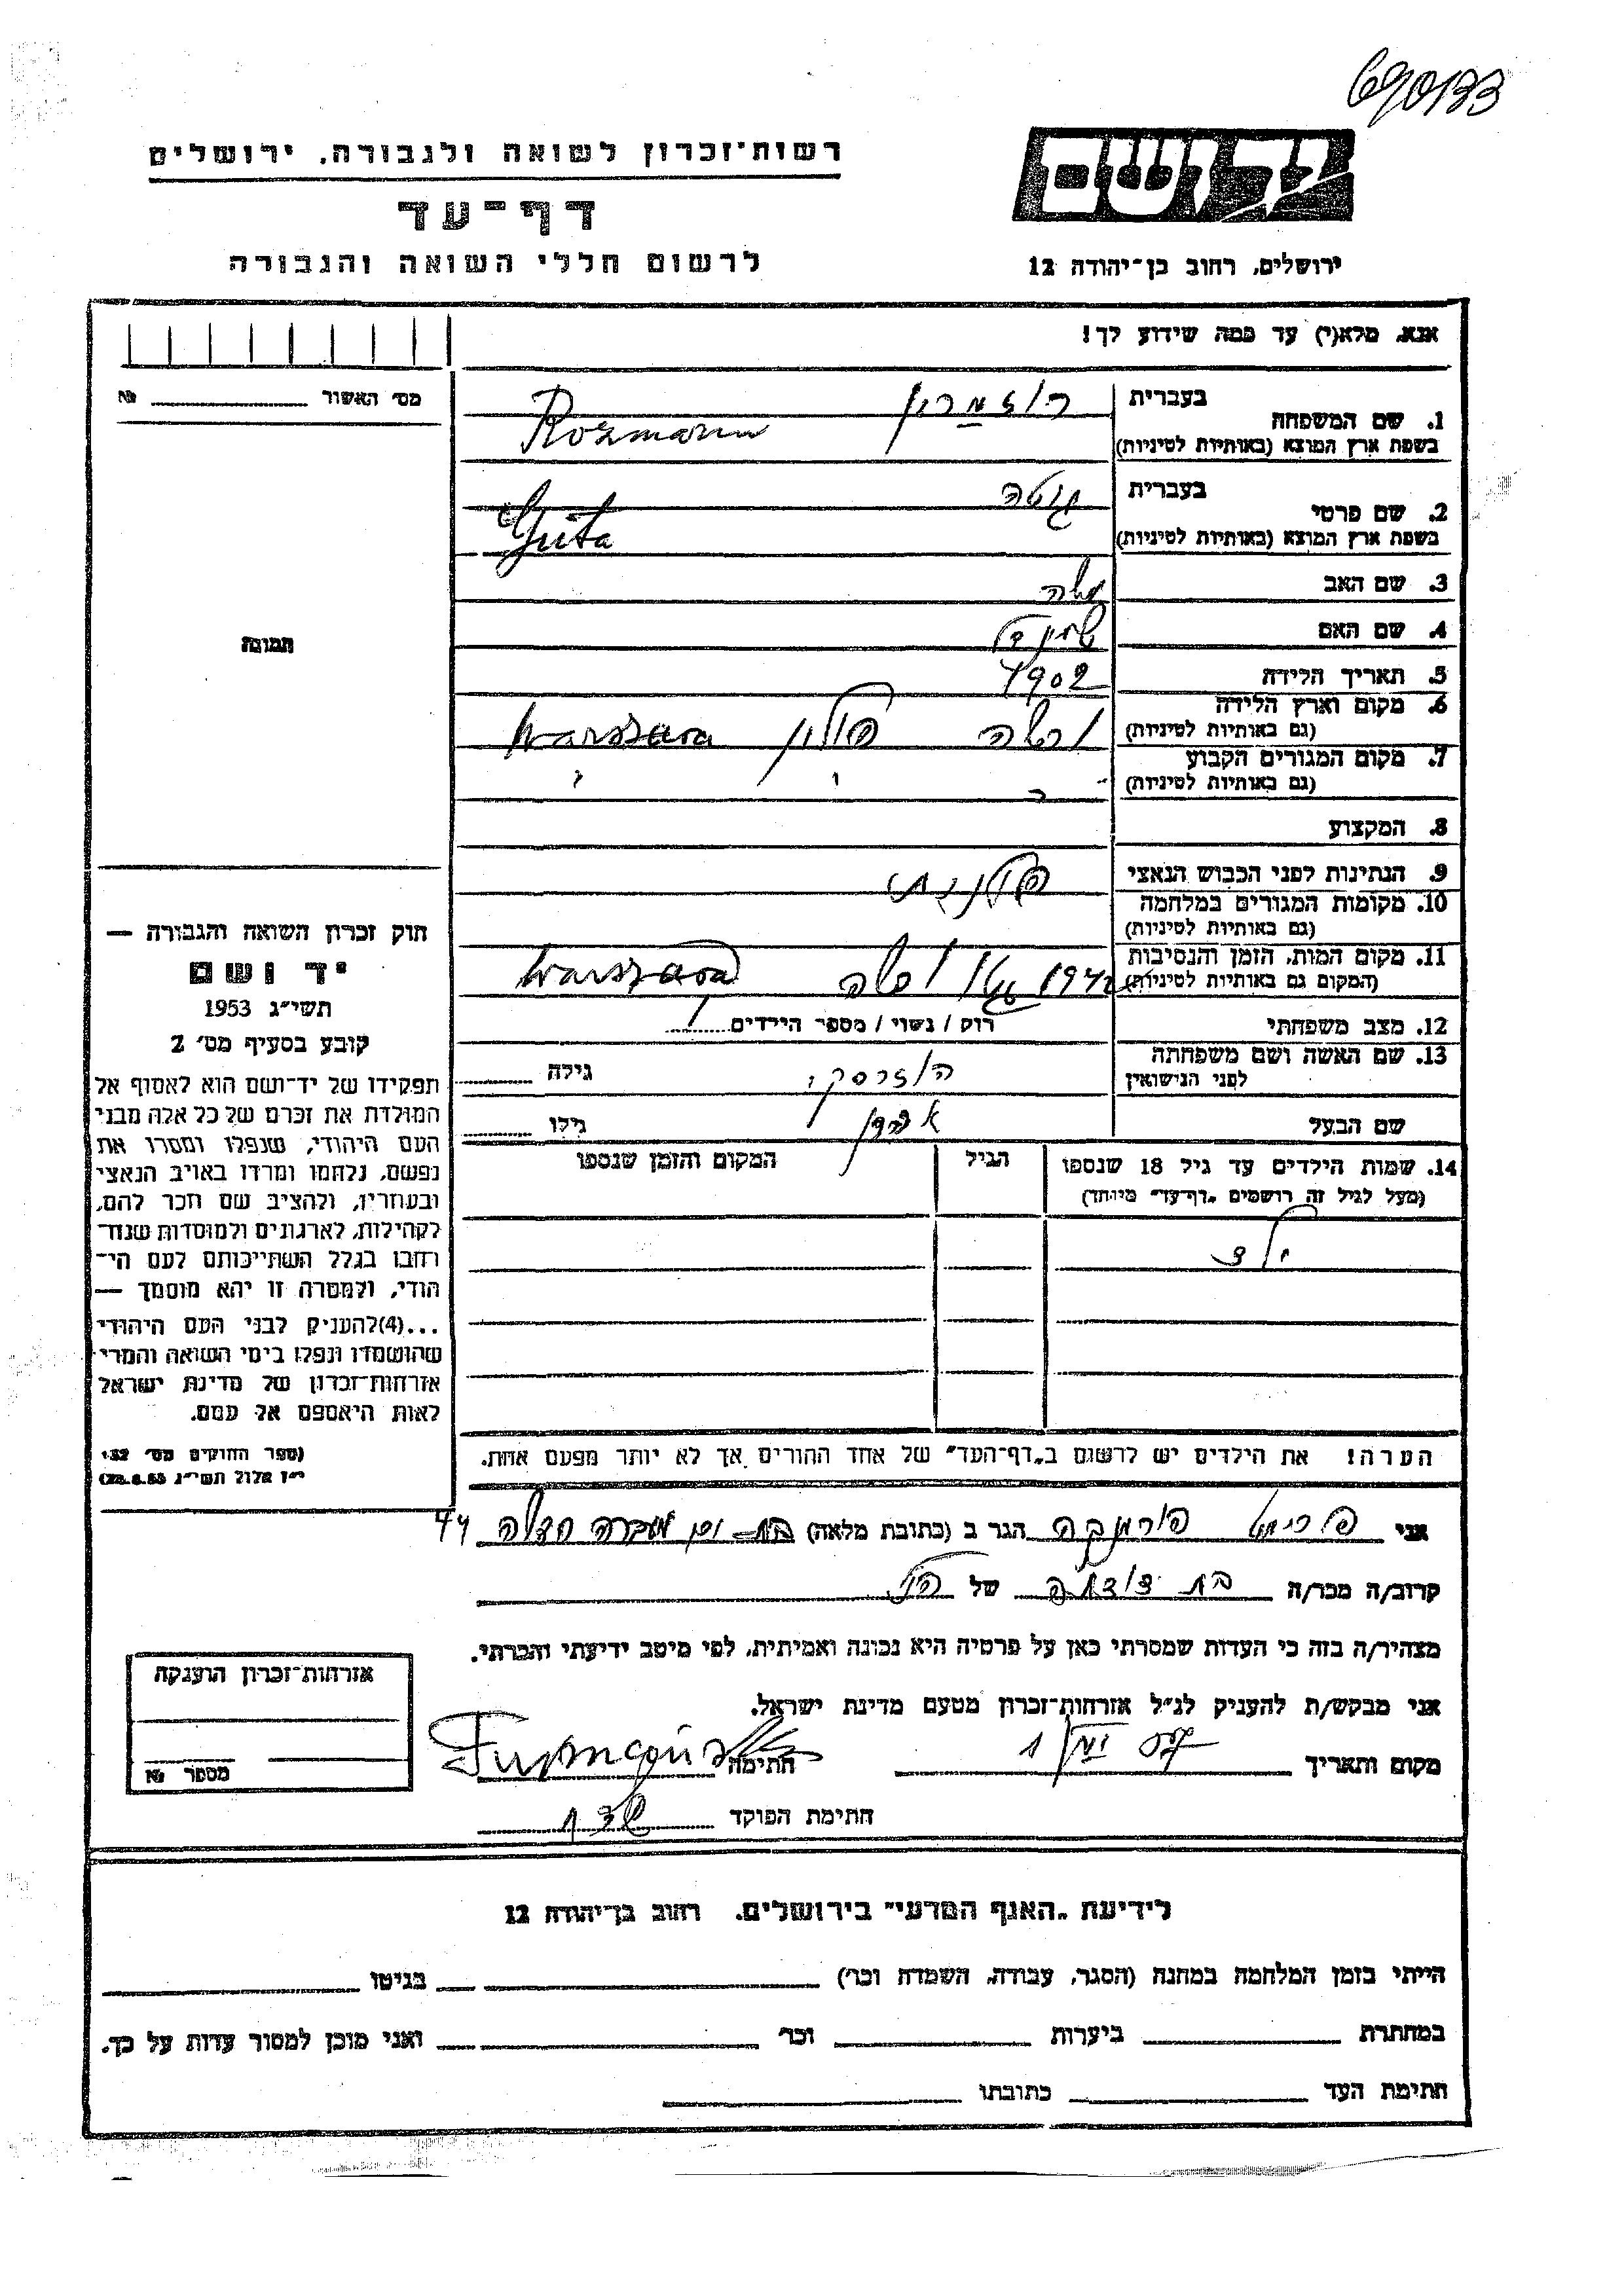 690133
יד ושם
רשות־זכרון לשואה ולגבורה, ירושלים
דף־עד
לרשום חללי השואה והגבורה
ירושלים, רחוב בן־יהודה 12
אנא, מלא(י) עד כמה שידוע לך!
מס׳ האשור №
1. שם המשפחה בעברית רוזמרין
בשפת ארץ המוצא (באותיות לטיניות) Rozmarin
2. שם פרטי בעברית גוטה
בשפת ארץ המוצא (באותיות לטיניות) Guta
3. שם האב משה
4. שם האם
תמונה
5. תאריך הלידה 1902
6. מקום וארץ הלידה (גם באותיות לטיניות) ורשה פולין Warszawa
7. מקום המגורים הקבוע (גם באותיות לטיניות)
8. המקצוע
9. הנתינות לפני הכבוש הנאצי פולנית
10. מקומות המגורים במלחמה (גם באותיות לטיניות)
11. מקום המות, הזמן והנסיבות (המקום גם באותיות לטיניות) 1942 גטו ורשה Warszawa
12. מצב משפחתי רוק / נשוי / מספר הילדים 1
13. שם האשה ושם משפחתה לפני הנישואין גילה
שם הבעל גילו
14. שמות הילדים עד גיל 18 שנספו הגיל המקום והזמן שנספו
(מעל לגיל זה רושמים „דף־עד״ מיוחד)
ילד
הערה! את הילדים יש לרשום ב„דף־העד״ של אחד ההורים אך לא יותר מפעם אחת.
חוק זכרון השואה והגבורה —
יד ושם
תשי״ג 1953
קובע בסעיף מס׳ 2
תפקידו של יד־ושם הוא לאסוף אל
המולדת את זכרם של כל אלה מבני
העם היהודי, שנפלו ומסרו את
נפשם, נלחמו ומרדו באויב הנאצי
ובעוזריו, ולהציב שם וזכר להם,
לקהילות, לארגונים ולמוסדות שנח־
רבו בגלל השתייכותם לעם הי־
הודי, ולמטרה זו יהא מוסמך —
...(4)להעניק לבני העם היהודי
שהושמדו ונפלו בימי השואה והמרי
אזרחות־זכרון של מדינת ישראל
לאות היאספם אל עמם.
(ספר החוקים מס׳ 132
י״ז אלול תשי״ג 28.8.53)
אני הגר ב (כתובת מלאה) בת־ים 44
קרוב/ה מכר/ה בת דודתה של הנ״ל
מצהיר/ה בזה כי העדות שמסרתי כאן על פרטיה היא נכונה ואמיתית, לפי מיטב ידיעתי והכרתי.
אני מבקש/ת להעניק לנ״ל אזרחות־זכרון מטעם מדינת ישראל.
מקום ותאריך חתימה
חתימת הפוקד
אזרחות־זכרון הוענקה
מספר №
לידיעת „האגף המדעי״ בירושלים, רחוב בן־יהודה 12
הייתי בזמן המלחמה במחנה (הסגר, עבודה, השמדה וכר׳) בגיטו
במחתרת ביערות וכר׳ ואני מוכן למסור עדות על כך.
חתימת העד כתובתו